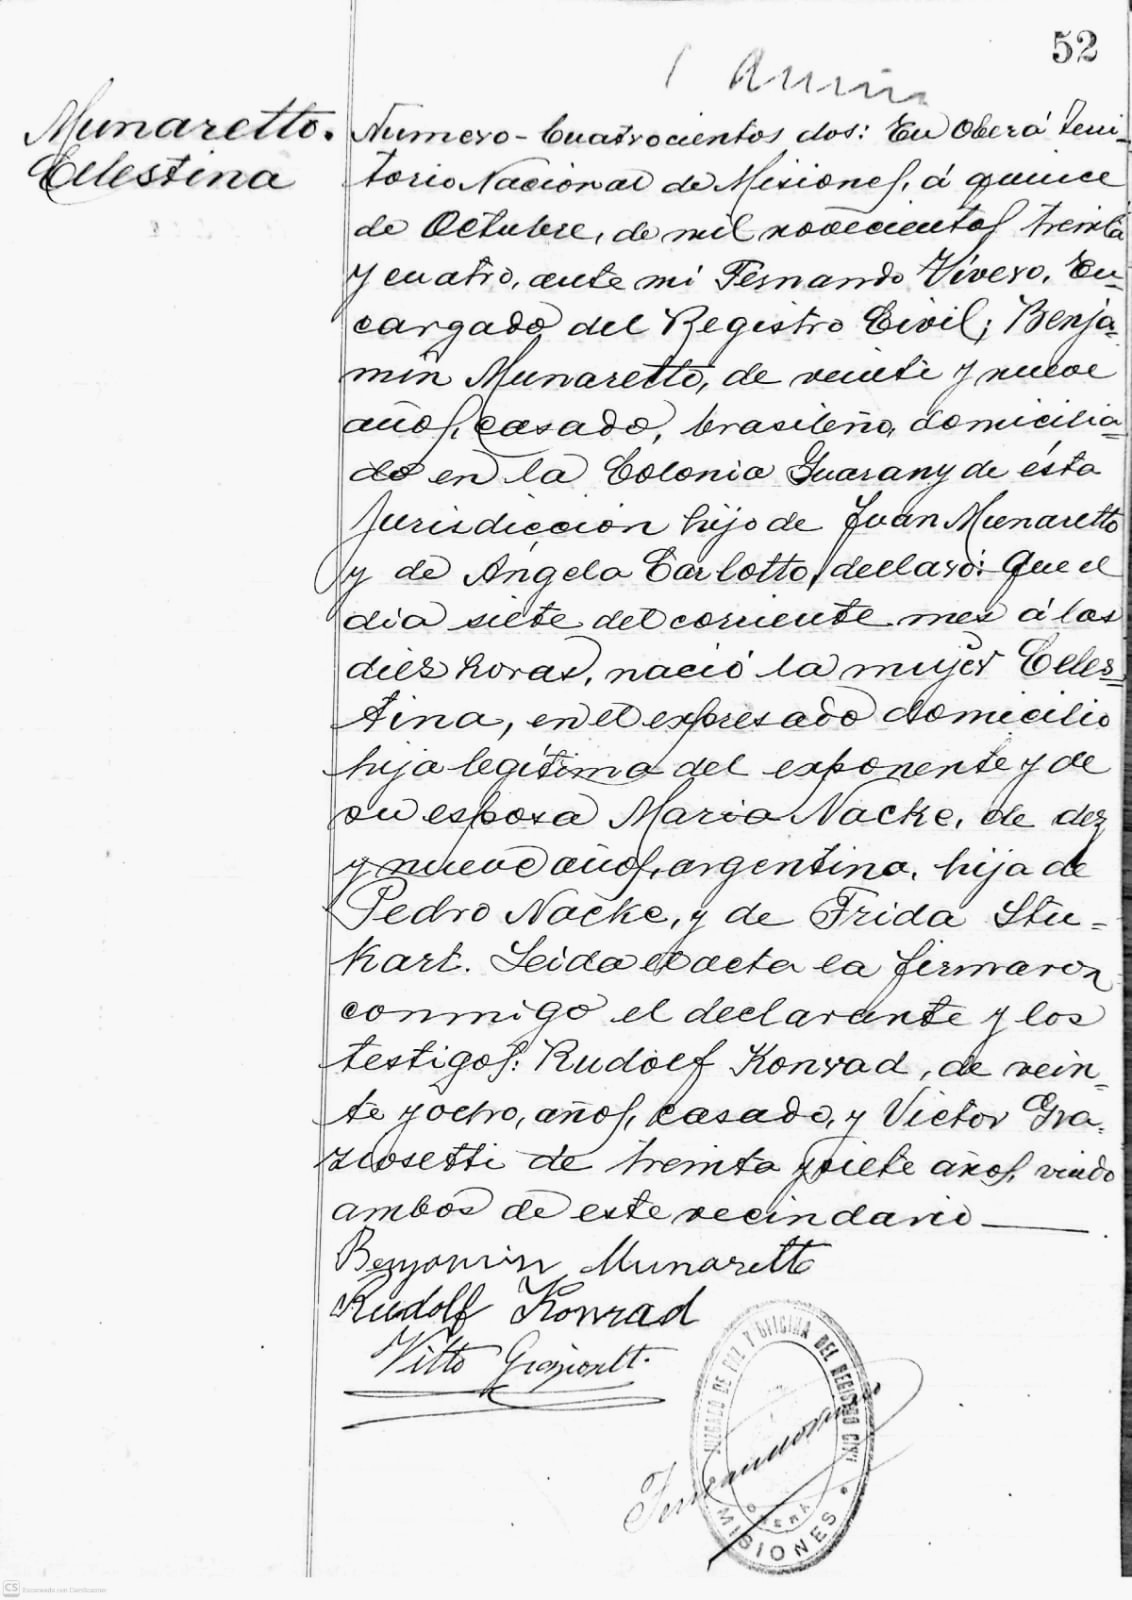 52
Munaretto.
Celestina
Numero-Cuatrocientos dos: En Oberá Terri-
torio Nacional de Misiones, á quince
de Octubre, de mil novecientos treinta
y cuatro, ante mi Fernando Vivero, En-
cargado del Registro Civil; Benja-
min Munaretto, de veinte y nueve
años, casado, brasileño, domicilia-
do en la Colonia Guarany de ésta
Jurisdicción hijo de Juan Munaretto
y de Angela Carlotto, declaró: Que el
dia siete del corriente mes á las
diez horas, nació la mujer Celes-
tina, en el expresado domicilio
hija legítima del exponente y de
su esposa Maria Nacke, de diez
y nueve años, argentina, hija de
Pedro Nacke, y de Frida Stu-
kart. Leida el acta la firmaron
conmigo el declarante y los
testigos: Rudolf Konrad, de vein-
te y ocho, años, casado, y Victor Gra-
ziosetti de treinta y siete años, viudo
ambos de este vecindario
Benjamin Munaretto
Rudolf Konrad
Vitto
JUZGADO DE PAZ Y OFICINA DEL REGISTRO CIVIL
OBERÁ
MISIONES
CS Escaneado con CamScanner